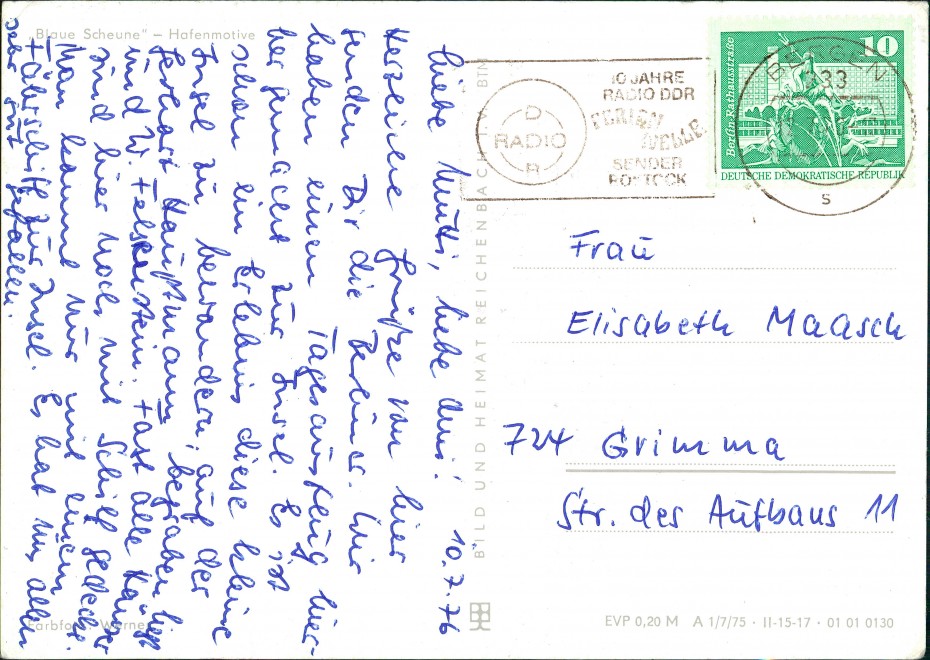 „Blaue Scheune“ – Hafenmotive
10.7.76
Liebe Mutti, liebe Omi!
Herzliche Grüße von hier
senden Dir die Berliner. Wir
haben einen Tagesausflug hier-
her gemacht zur Insel. Es ist
schon ein Erlebnis diese kleine
Insel zu bewandern, auf der
Gerhart Hauptmann begraben liegt
und W. Felsenstein. Fast alle Häuser
sind hier noch mit Schilf gedeckt.
Man kommt nur mit einem
Fährschiff zur Insel. Es hat uns allen
sehr gut gefallen.
Farbfoto: Werner
BILD UND HEIMAT REICHENBACH BTN
10 JAHRE
RADIO DDR
FERIEN
WELLE
SENDER
ROSTOCK
D
RADIO
R
BERGEN
233
s
10
Berlin · Rathausstraße
DEUTSCHE DEMOKRATISCHE REPUBLIK
Frau
Elisabeth Maasch
724 Grimma
Str. des Aufbaus 11
EVP 0,20 M A 1/7/75 · II-15-17 · 01 01 0130